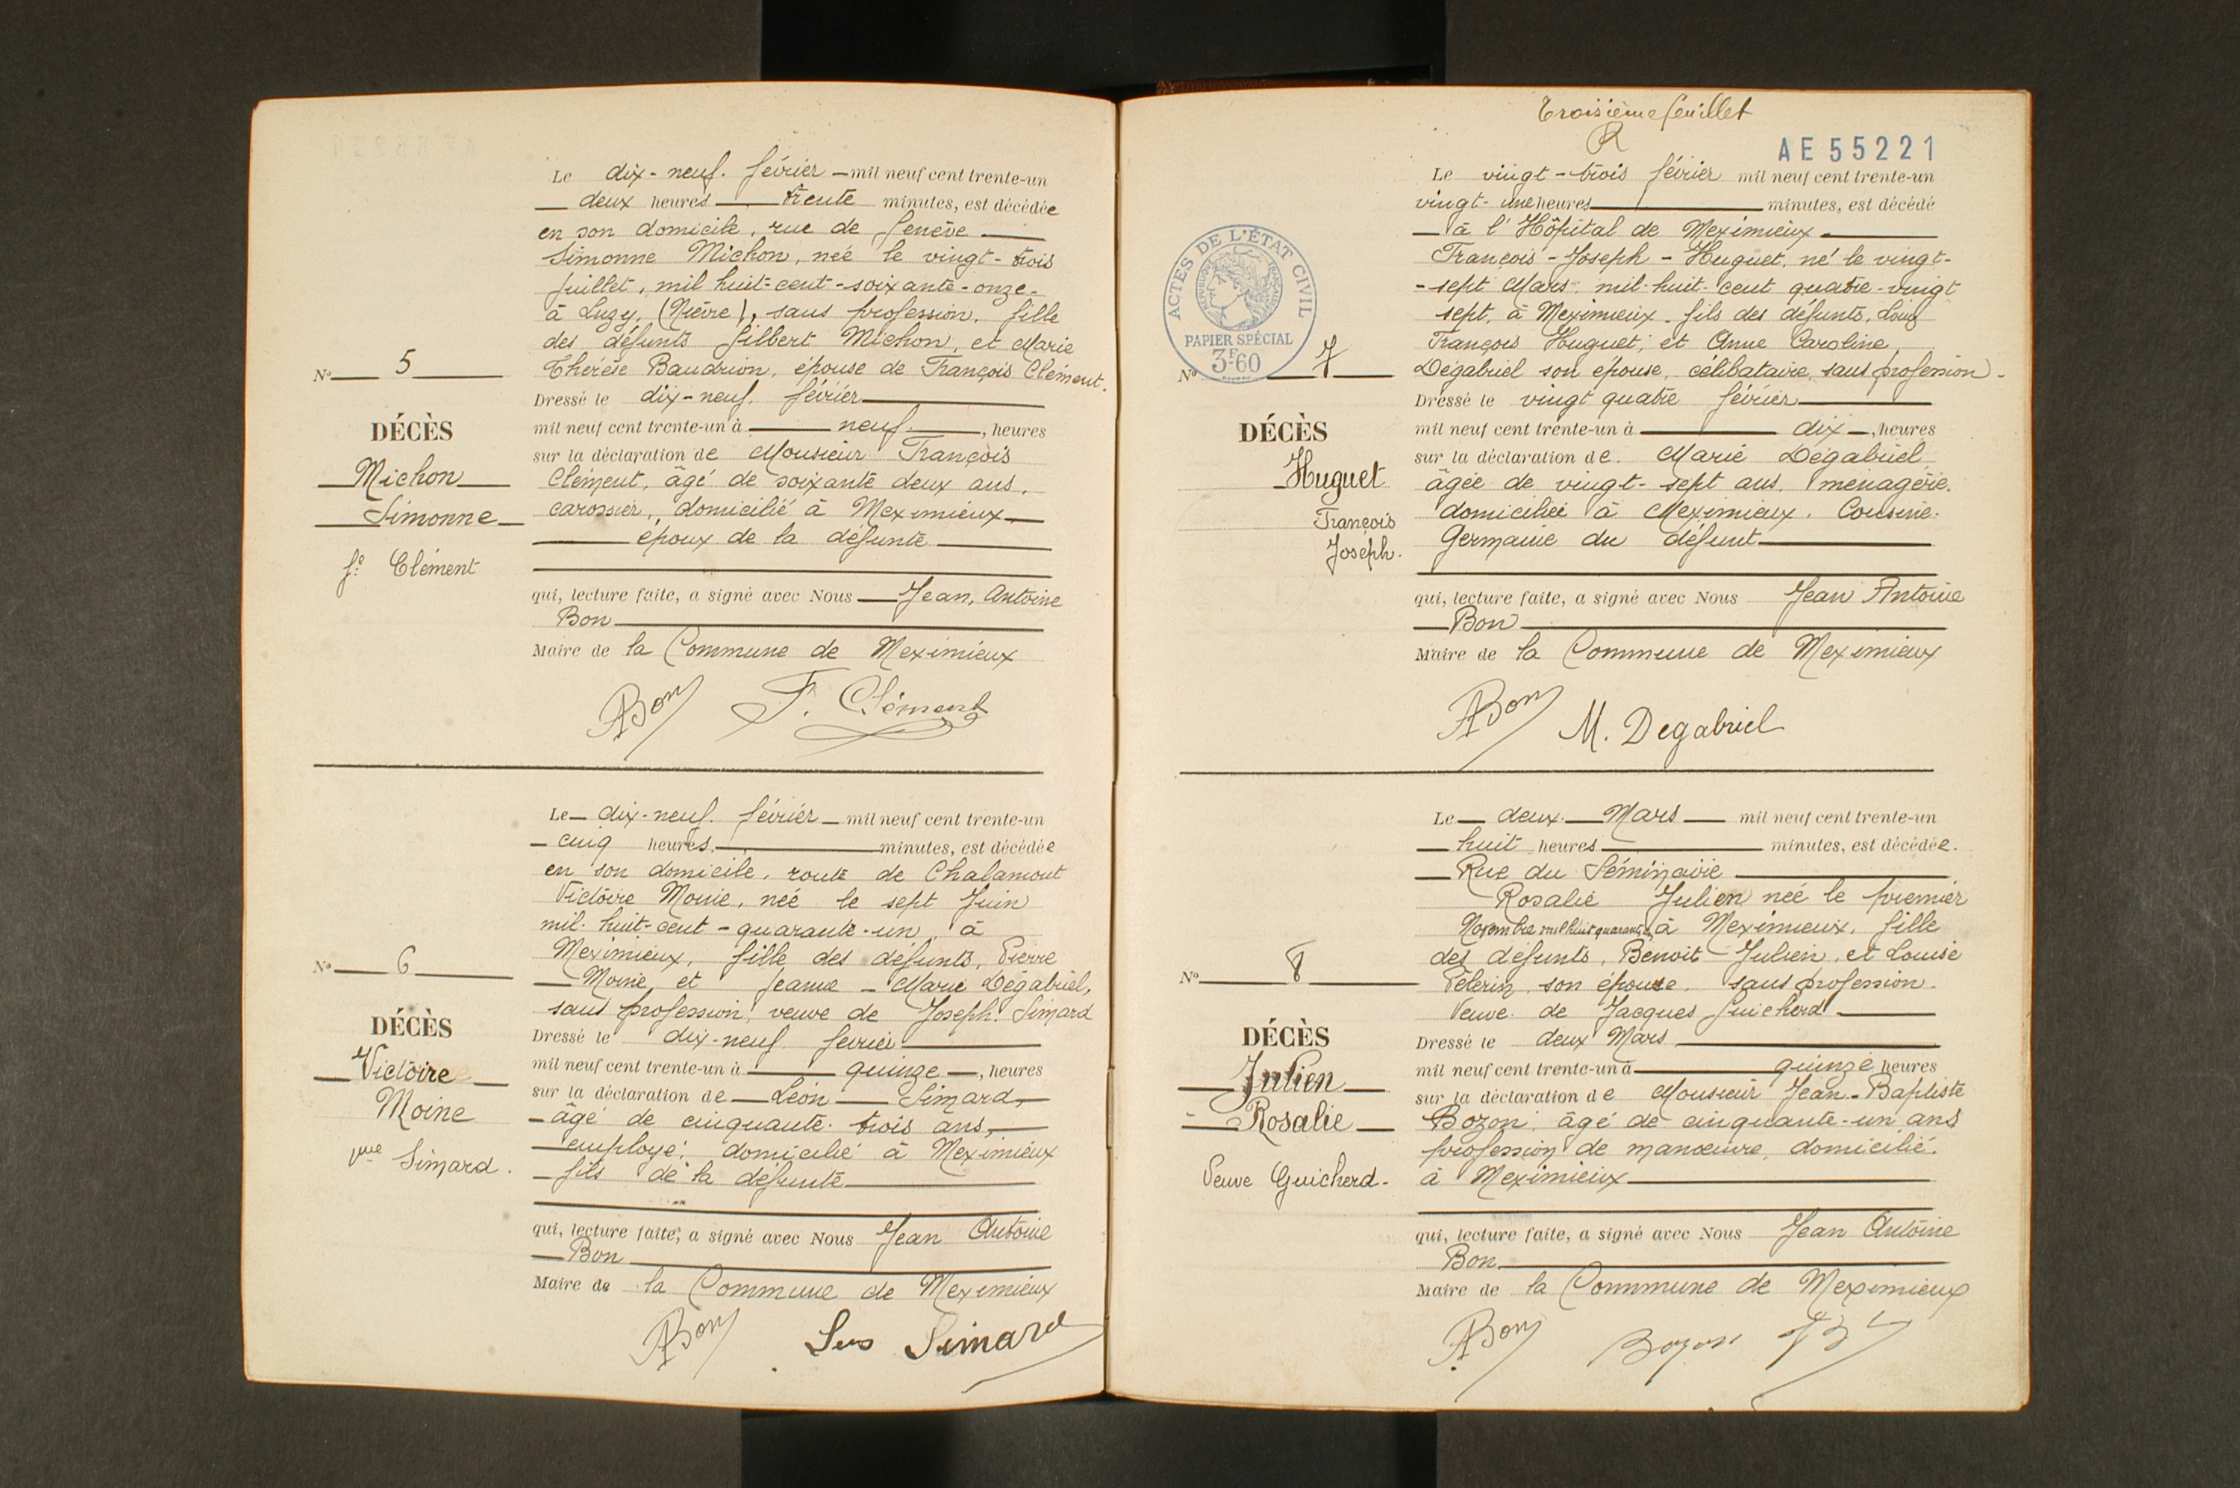 Le dix-neuf. février - mil neuf cent trente-un
deux heures trente minutes, est décédée
en son domicile, rue de Genève
Simonne Michon, neé le vingt-trois
Juillet, mil huit-cent-soixante-onze-
à Luzy, (Nièvre), sans profession. fille
des défunts Gilbert Michon, et Marie
Thérèse Baudrion, épouse de François Clément.
N° 5
Dressé le dix-neuf. février
DÉCÈS
Michon
Simonne
fe Clément
mil neuf cent trente-un à neuf, heures
sur la déclaration de Monsieur François
Clément, âgé de soixante deux ans,
carossier, domicilié à Meximieux
époux de la défunte
qui, lecture faite, a signé avec Nous Jean, Antoine
Bon
Maire de la Commune de Meximieux
ABon F. Clément
Le dix-neuf. février - mil neuf cent trente-un
cinq heures, minutes, est décédée
en son domicile, route de Chalamont
Victoire Moine, neé le sept Juin
mil. huit-cent-quarante-un, à
Meximieux, fille des défunts, Pierre
Moine, et Jeanne - Marie Dégabriel,
sans profession, veuve de Joseph. Simard
N° 6
DÉCÈS
Victoire
Moine
vve Simard.
Dressé le dix-neuf février
mil neuf cent trente-un à quinze, heures
sur la déclaration de Léon Simard,
âgé de cinquante. trois ans,
employé, domicilié à Meximieux
fils de la défunte
qui, lecture faite, a signé avec Nous Jean Antoine
Bon
Maire de la Commune de Meximieux
ABon Simard
Troisième feuillet
AE 55221
ACTES DE L'ÉTAT CIVIL
RÉPUBLIQUE FRANÇAISE
PAPIER SPÉCIAL
3F.60
Le vingt-trois février mil neuf cent trente-un
vingt-une heures minutes, est décédé
à l'Hôpital de Meximieux
François-Joseph-Huguet, né le vingt-
-sept Mars. mil-huit-cent quatre-vingt
sept, à Meximieux. fils des défunts, Louis
François Huguet, et Anne Caroline
Dégabriel son épouse, célibataire, sans profession-
N° 7
DÉCÈS
Huguet
François
Joseph.
Dressé le vingt quatre février
mil neuf cent trente-un à dix, heures
sur la déclaration de. Marie Dégabriel
âgée de vingt-sept ans, ménagère.
domiciliée à Meximieux. Cousine.
Germaine du défunt
qui, lecture faite, a signé avec Nous Jean Antoine
Bon
Maire de la Commune de Meximieux
ABon M. Degabriel
Le deux Mars mil neuf cent trente-un
huit heures minutes, est décédée.
Rue du Séminaire
Rosalie Julien neé le premier
Novembre mil huit quarante à Meximieux, fille
des défunts, Benoit Julien, et Louise
Pélerin, son épouse. sans profession.
Veuve de Jacques Guicherd
N° 8
DÉCÈS
Julien
Rosalie
Veuve Guicherd-
Dressé le deux Mars
mil neuf cent trente-un à quinze heures
sur la déclaration de Monsieur Jean-Baptiste
Bozon, âgé de cinquante-un ans
profession de manœuvre, domicilié.
à Meximieux
qui, lecture faite, a signé avec Nous Jean Antoine
Bon
Maire de la Commune de Meximieux
ABon Bozon